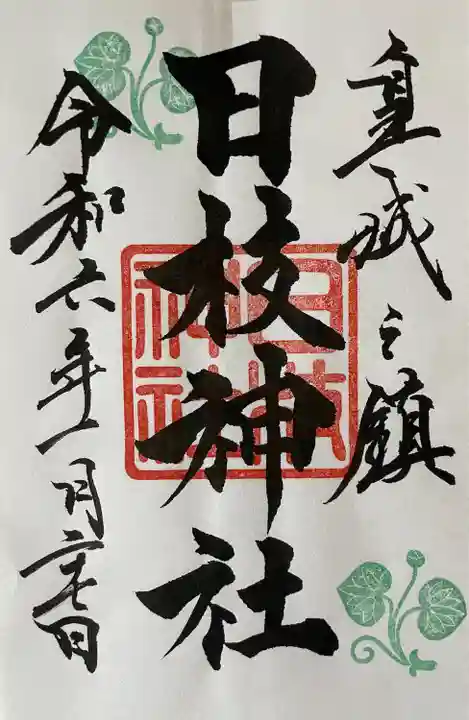 皇城之鎮
日枝神社
日枝
神社
令和六年一月二十七日